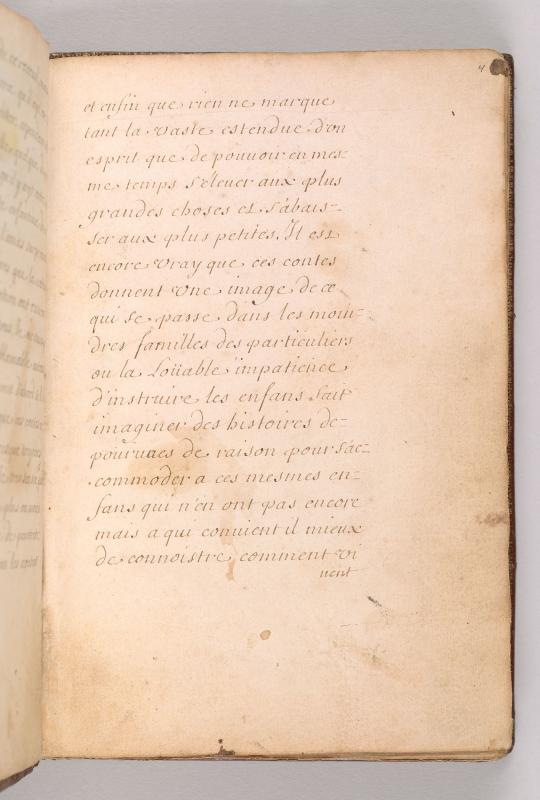 4
et enfin que rien ne marque
tant la vaste estendue d'un
esprit que de pouuoir en mes-
me temps s'éleuer aux plus
grandes choses et s'abais-
ser aux plus petites. Il est
encore vray que ces contes
donnent vne image de ce
qui se passe dans les moin-
dres familles des particuliers
ou la Loüable impatience
d'instruire les enfans fait
imaginer des histoires de-
pourueues de raison pour s'ac-
commoder a ces mesmes en-
fans qui n'en ont pas encore
mais a qui conuient il mieux
de connoistre comment vi
uent